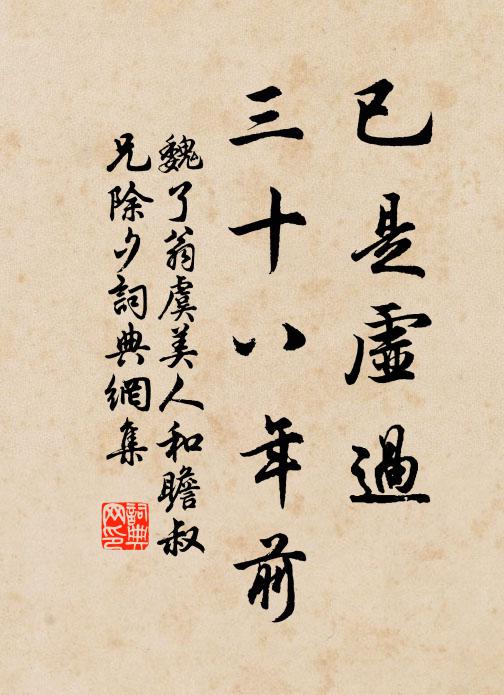 已是虛過
三十八年前
魏了翁虞美人和瞻叔
兄除夕詞典網集
詞典
网印